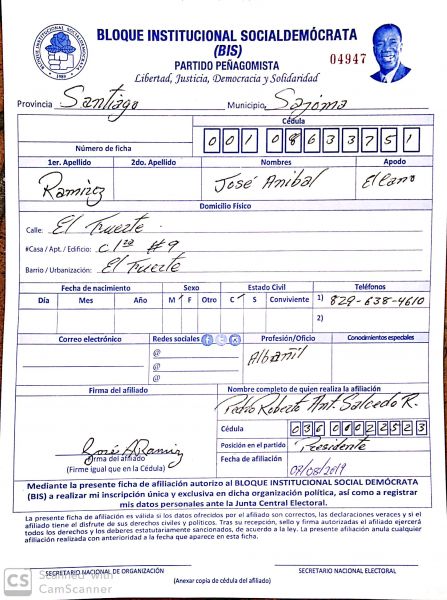 BLOQUE INSTITUCIONAL SOCIALDEMÓCRATA
(BIS)
PARTIDO PEÑAGOMISTA
Libertad, Justicia, Democracia y Solidaridad
04947
BLOQUE INSTITUCIONAL SOCIALDEMOCRATA
1989
Provincia Santiago Municipio Sajoma
Cédula
Número de ficha 001 0863375 1
1er. Apellido 2do. Apellido Nombres Apodo
Ramirez José Anibal El Cano
Domicilio Físico
Calle: El Fuerte
#Casa / Apt. / Edificio: C 1ra #9
Barrio / Urbanización: El Fuerte
Fecha de nacimiento Sexo Estado Civil Teléfonos
Día Mes Año M F Otro C S Conviviente 1) 829-638-4610
2)
Correo electrónico Redes sociales Profesión/Oficio Conocimientos especiales
@ Albañil
@
@
Firma del afiliado Nombre completo de quien realiza la afiliación
Pedro Roberto Ant. Salcedo R.
Cédula 036 0002252 3
José A Ramirez
Posición en el partido Presidente
Firma del afiliado
(Firme igual que en la Cédula)
Fecha de afiliación 07/05/2019
Mediante la presente ficha de afiliación autorizo al BLOQUE INSTITUCIONAL SOCIAL DEMÓCRATA
(BIS) a realizar mi inscripción única y exclusiva en dicha organización política, así como a registrar
mis datos personales ante la Junta Central Electoral.
La presente ficha de afiliación es válida si los datos ofrecidos por el afiliado son correctos, las declaraciones veraces y si el
afiliado tiene el disfrute de sus derechos civiles y políticos. Tras su recepción, sello y firma autorizada el afiliado ejercerá
todos los derechos y los deberes estatutariamente sancionados, de acuerdo a la ley. La presente afiliación anula cualquier
afiliación realizada con anterioridad a la fecha que aparece en esta ficha.
SECRETARIO NACIONAL DE ORGANIZACIÓN SECRETARIO NACIONAL ELECTORAL
(Anexar copia de cédula del afiliado)
CS Scanned with
CamScanner